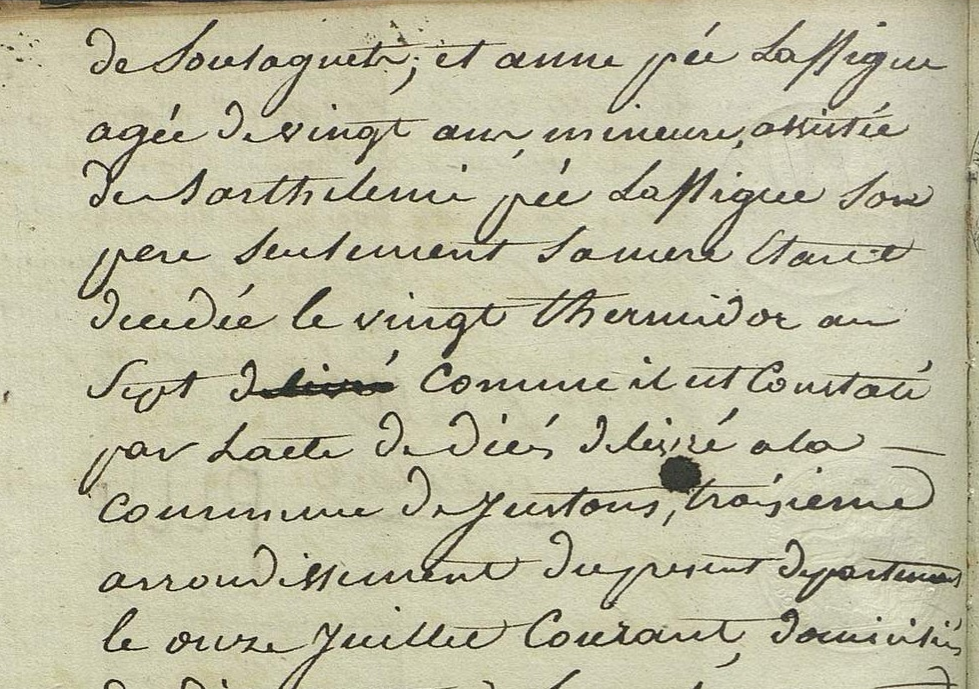 de Soulagnets, et anne pée Laffigue
agée de vingt ans, mineure, assistée
de Barthelemi pée Laffigue Son
pere Seulement Sa mere Etant
decedée le vingt thermidor an
Sept Comme il est Constaté
par Lacte de dićés delivré a la
commune de Justous, troisieme
arrondissement du present departement
le onze Juillet Courant, domiciliés